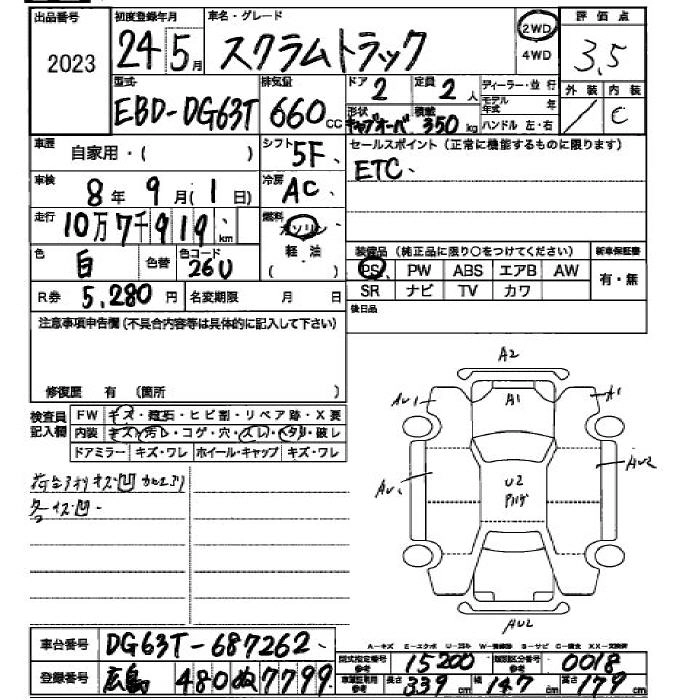 出品番号 初度登録年月 車名・グレード 評価点
2023 24 5月 スクラムトラック 2WD 4WD 3.5
型式 排気量 ドア 定員 ディーラー・並行 外装 内装
EBD-DG63T 660cc 2 2人 モデル年式 年 / C
形状 キャブオーバ 積載 350kg ハンドル 左・右
車歴 自家用・( ) シフト 5F セールスポイント(正常に機能するものに限ります)
車検 8年 9月(1日) 冷房 AC ETC、
走行 10万7千919km 燃料 ガソリン 軽油 ( )
色 白 色替 色コード 26U 装備品(純正品に限り○をつけてください) 新車保証書
PS PW ABS エアB AW 有・無
R券 5,280円 名変期限 月 日 SR ナビ TV カワ
注意事項申告欄(不具合内容等は具体的に記入して下さい) 後日品
修復歴 有 (箇所 )
検査員記入欄 FW キズ・飛石・ヒビ割・リペア跡・X要
内装 キズ・汚レ・コゲ・穴・スレ・ヘタリ・破レ
ドアミラー キズ・ワレ ホイール・キャップ キズ・ワレ
A2
AU1 A1 A1
U2
AU2
AU2
車台番号 DG63T-687262
登録番号 広島 480 ぬ 7799
型式指定番号 参考 15200 類別区分番号 参考 0018
長さ 339cm 幅 147cm 高さ 179cm